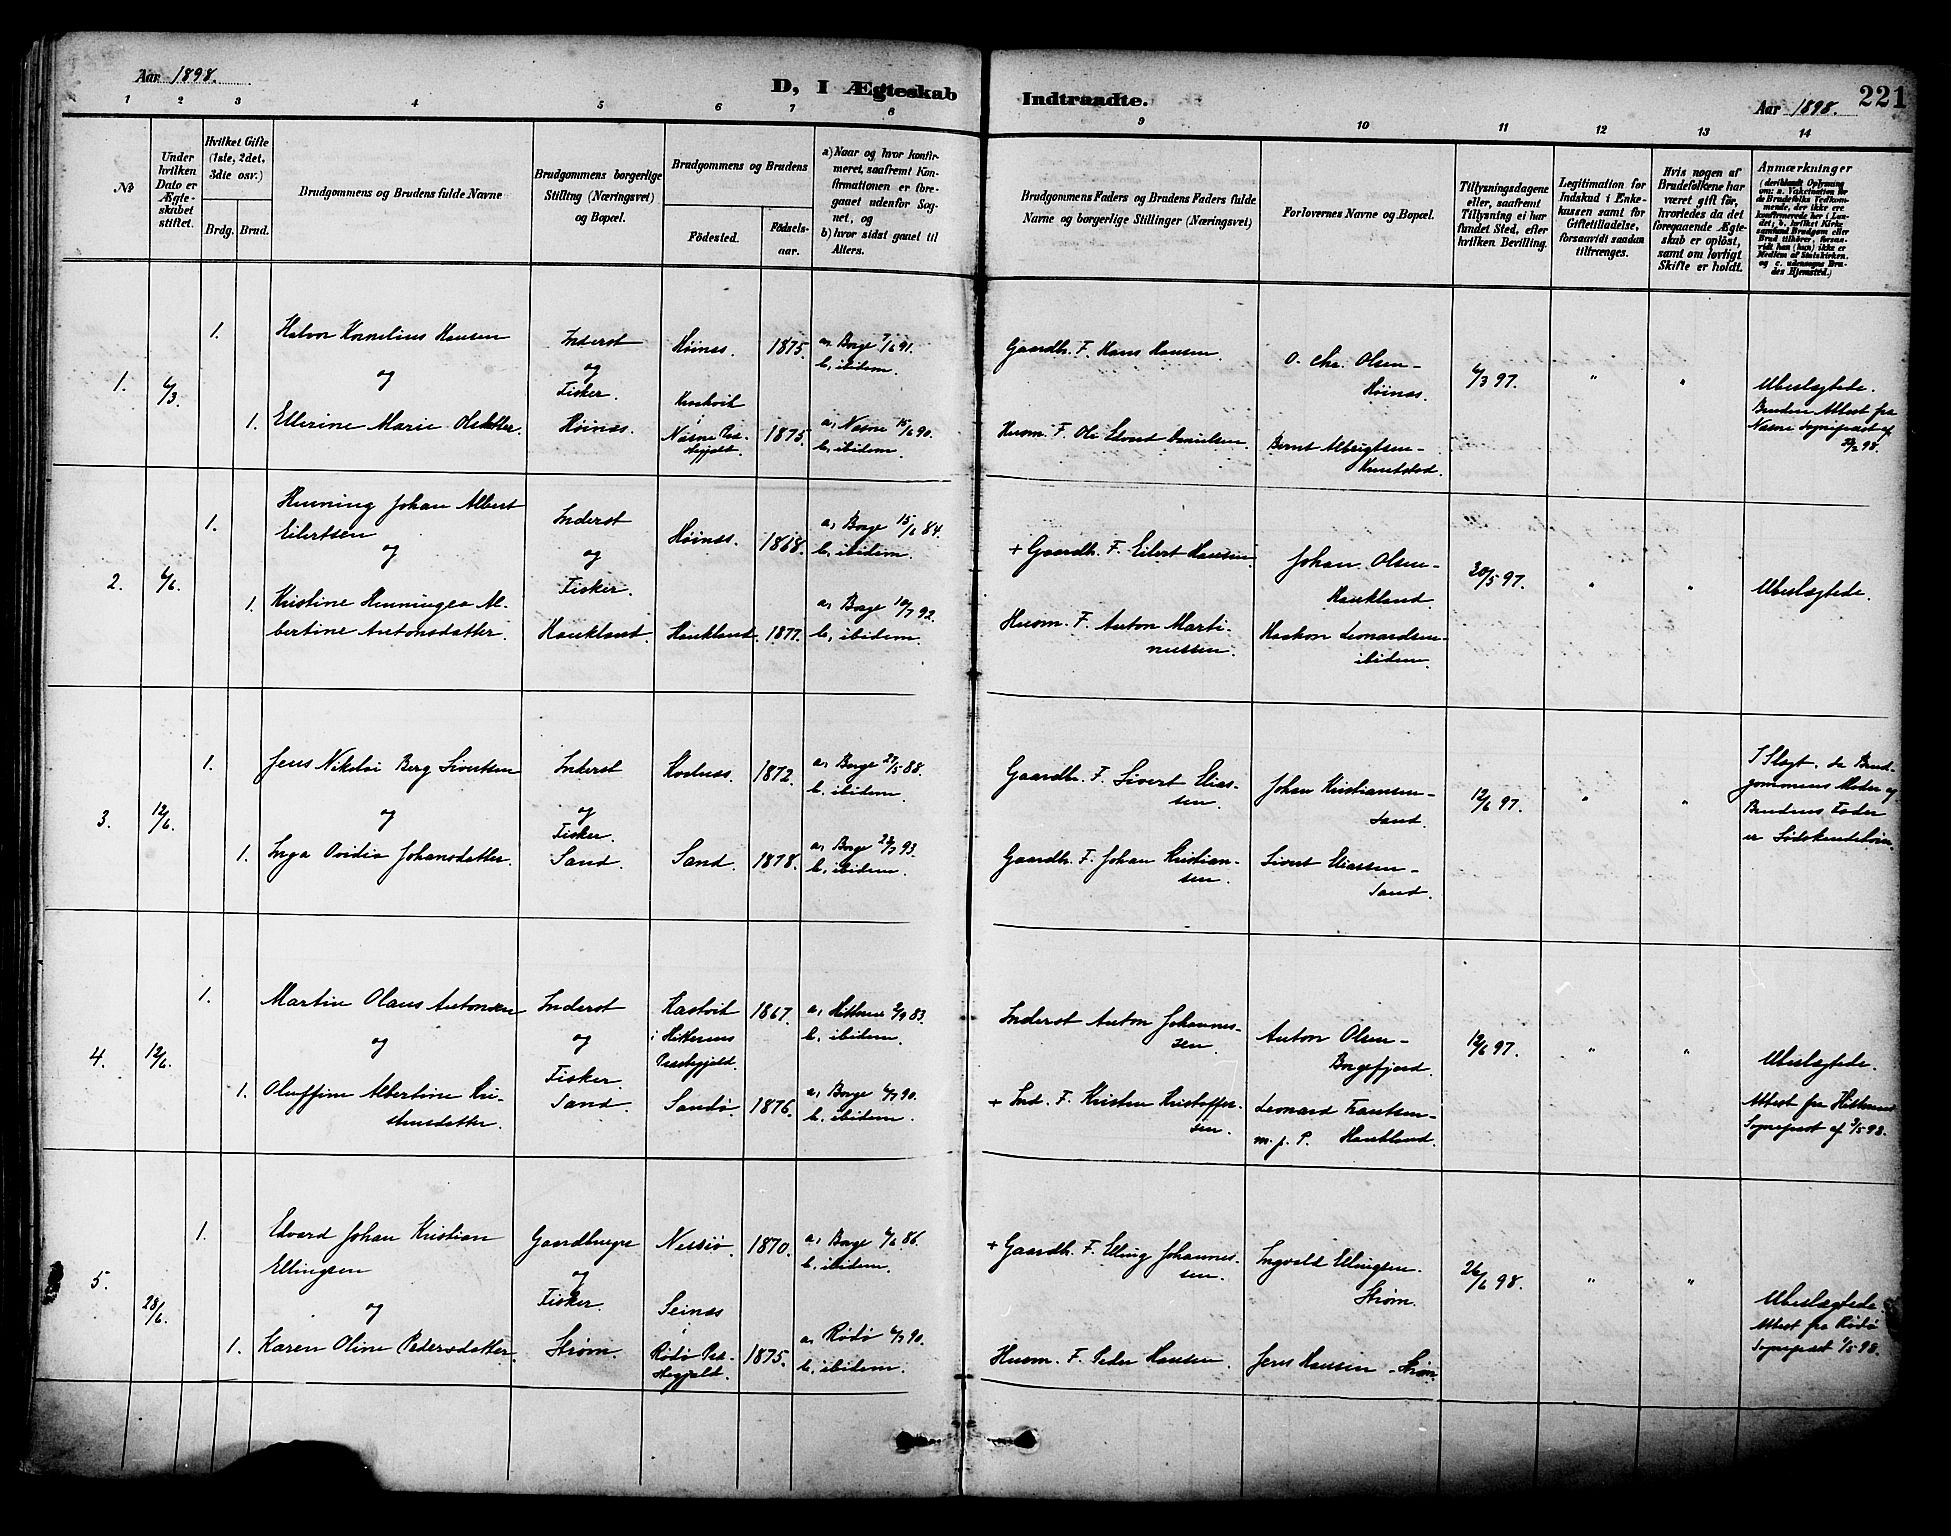 Aar 1898.
D, I Ægteskab
Indtraadte.
Aar 1898.
221
1 2 3 4 5 6 7 8 9 10 11 12 13 14
№
Under
hvilken
Dato er
Ægte-
skabet
stiftet.
Hvilket Gifte
(1ste, 2det,
3die osv.)
Brdg. Brud.
Brudgommens og Brudens fulde Navne
Brudgommens borgerlige
Stilling (Næringsvei)
og Bopæl.
Brudgommens og Brudens
Fødested.
Fødsels-
aar.
a) Naar og hvor konfir-
meret, saafremt Kon-
firmationen er fore-
gaaet udenfor Sog-
net, og
b) hvor sidst gaaet til
Alters.
Brudgommens Faders og Brudens Faders fulde
Navne og borgerlige Stillinger (Næringsvei)
Forlovernes Navne og Bopæl.
Tillysningsdagene
eller, saafremt
Tillysning ei har
fundet Sted, efter
hvilken Bevilling.
Legitimation for
Indskud i Enke-
kassen samt for
Giftetilladelse,
forsaavidt saadan
tiltrænges.
Hvis nogen af
Brudefolkene har
været gift før,
hvorledes da det
foregaaende Ægte-
skab er opløst,
samt om lovligt
Skifte er holdt.
Anmærkninger
(deriblandt Oplysning
om: a. Vakcination for
de Brudefolks Vedkom-
mende, der ikke ere
konfirmerede her i Lan-
det; b. hvilket Kirke-
samfund Brudgom eller
Brud tilhører, forsaa-
vidt han (hun) ikke er
Medlem af Statskirken,
og c. udensogns Bru-
des Hjemsted.)
1.
6/3.
1.
Halvor Kornelius Hansen
og
1. Ellerine Marie Olsdatter.
Inderst
og
Fisker.
Høinæs.
Høinæs. 1875.
i
Næsne Præ-
stegjeld. 1875.
a, Borge 7/6 91.
b, ibidem.
a, Næsne 15/6 90.
b, ibidem.
Gaardb. F. Hans Hansen.
Husm. F. Ole Edvard Danielsen.
O. Chr. Olsen -
Høinæs.
Bernt Albrigtsen -
Knutstad.
6/3 97.
"
"
Ubeslægtede.
Brudens Attest fra
Næsne Sognepræst af
98.
2.
6/6.
1.
Henning Johan Albert
Eilertsen
og
1. Kristine Henningea Al-
bertine Antonsdatter.
Inderst
og
Fisker.
Haukland.
Høinæs. 1868.
Haukland. 1877.
a, Borge 15/6 84.
b, ibidem.
a, Borge 10/7 92.
b, ibidem.
+ Gaardb. F. Eilert Hansen
Husm. F. Anton Marti-
nussen.
Johan Olsen -
Haukland.
Haakon Leonardsen -
ibidem.
30/5 97.
"
"
Ubeslægtede.
3.
12/6.
1.
Jens Nikolai Berg Sivertsen
og
1. Inga Ovidia Johansdatter.
Inderst
og
Fisker.
Sand.
1872.
Sand. 1878.
a, Borge 27/5 88.
b, ibidem.
a, Borge 23/7 93.
b, ibidem.
Gaardb. F. Sivert Elias-
sen.
Gaardb. F. Johan Kristian-
sen.
Johan Kristiansen -
Sand.
Sivert Eliassen -
Sand.
12/6 97.
"
"
I Slægt, da Brud-
gommens Moder og
Brudens Fader
er Sødskendebørn.
4.
12/6.
1.
Martin Olaus Antonsen
og
1. Oluffine Albertine Kri-
stensdatter.
Inderst
og
Fisker.
Sand.
Hastvik
i Hitterens
Præstegjeld. 1867.
Sandø. 1876.
a, Hitteren 2/9 83.
b, ibidem.
a, Borge 6/7 90.
b, ibidem.
Inderst Anton Johannes-
sen.
+ Ind. F. Kristen Kristoffer-
sen.
Anton Olsen -
Borgefjord.
Leonard Frantsen -
m. p. P. Haukland.
12/6 97.
"
"
Ubeslægtede.
Attest fra Hitterens
Sognepræst af 9/5 98.
5.
28/6.
1.
Edvard Johan Kristian
Ellingsen
og
1. Karen Oline Pedersdatter.
Gaardbruger
og
Fisker.
Strøm.
1870.
Seinæs
i
Rødø Præ-
stegjeld. 1875.
a, Borge 6/6 86.
b, ibidem.
a, Rødø 6/7 90.
b, ibidem.
+ Gaardb. F. Elling Johannes-
sen.
Husm. F. Peder Hansen.
Ingvald Ellingsen.
Strøm.
Jens Hansen - Strøm.
26/6 98.
"
"
Ubeslægtede.
Attest fra Rødø
Sognepræst 1/5 98.